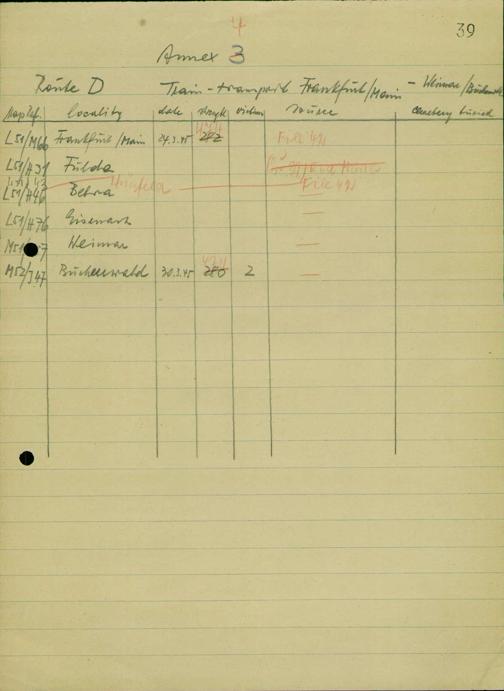 4
39
Annex 3
Route D Train-transport Frankfurt/Main - Weimar/Buchenw.
Map Ref. locality date strength victims source cemetery buried
L51/M66 Frankfurt/Main 24.3.45 282 File 491
L51/H31 Fulda
Hünfeld
L51/H46 Bebra File 491
L51/H76 Eisenach —
Weimar —
M52/J47 Buchenwald 30.3.45 280 2 —